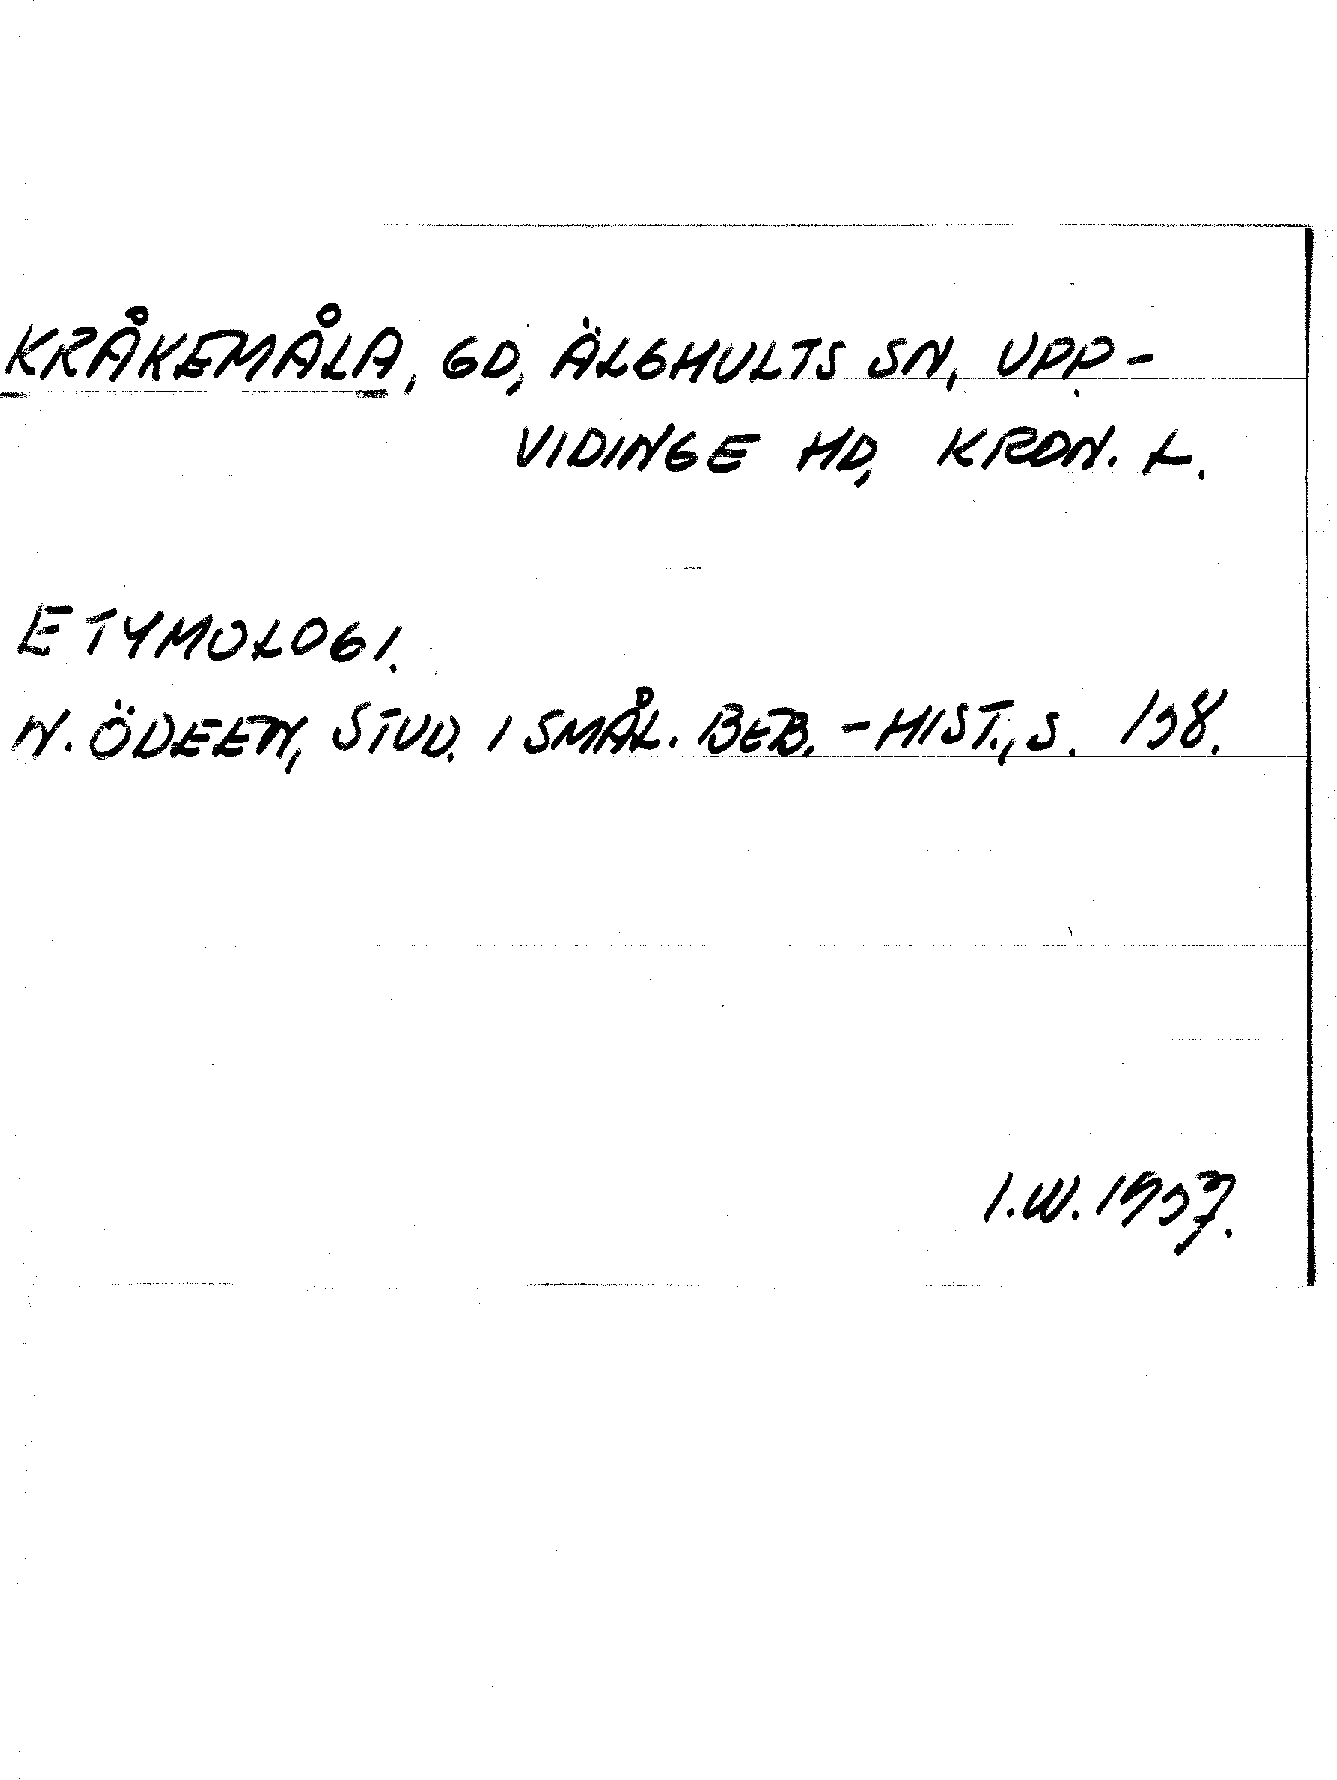 KRÅKEMÅLA, GD, ÄLGHULTS SN, UPP-
VIDINGE HD, KRON. L.
ETYMOLOGI.
N. ÖDEEN, STUD. I SMÅL. BEB.-HIST., S. 198.
I.W. 1937.